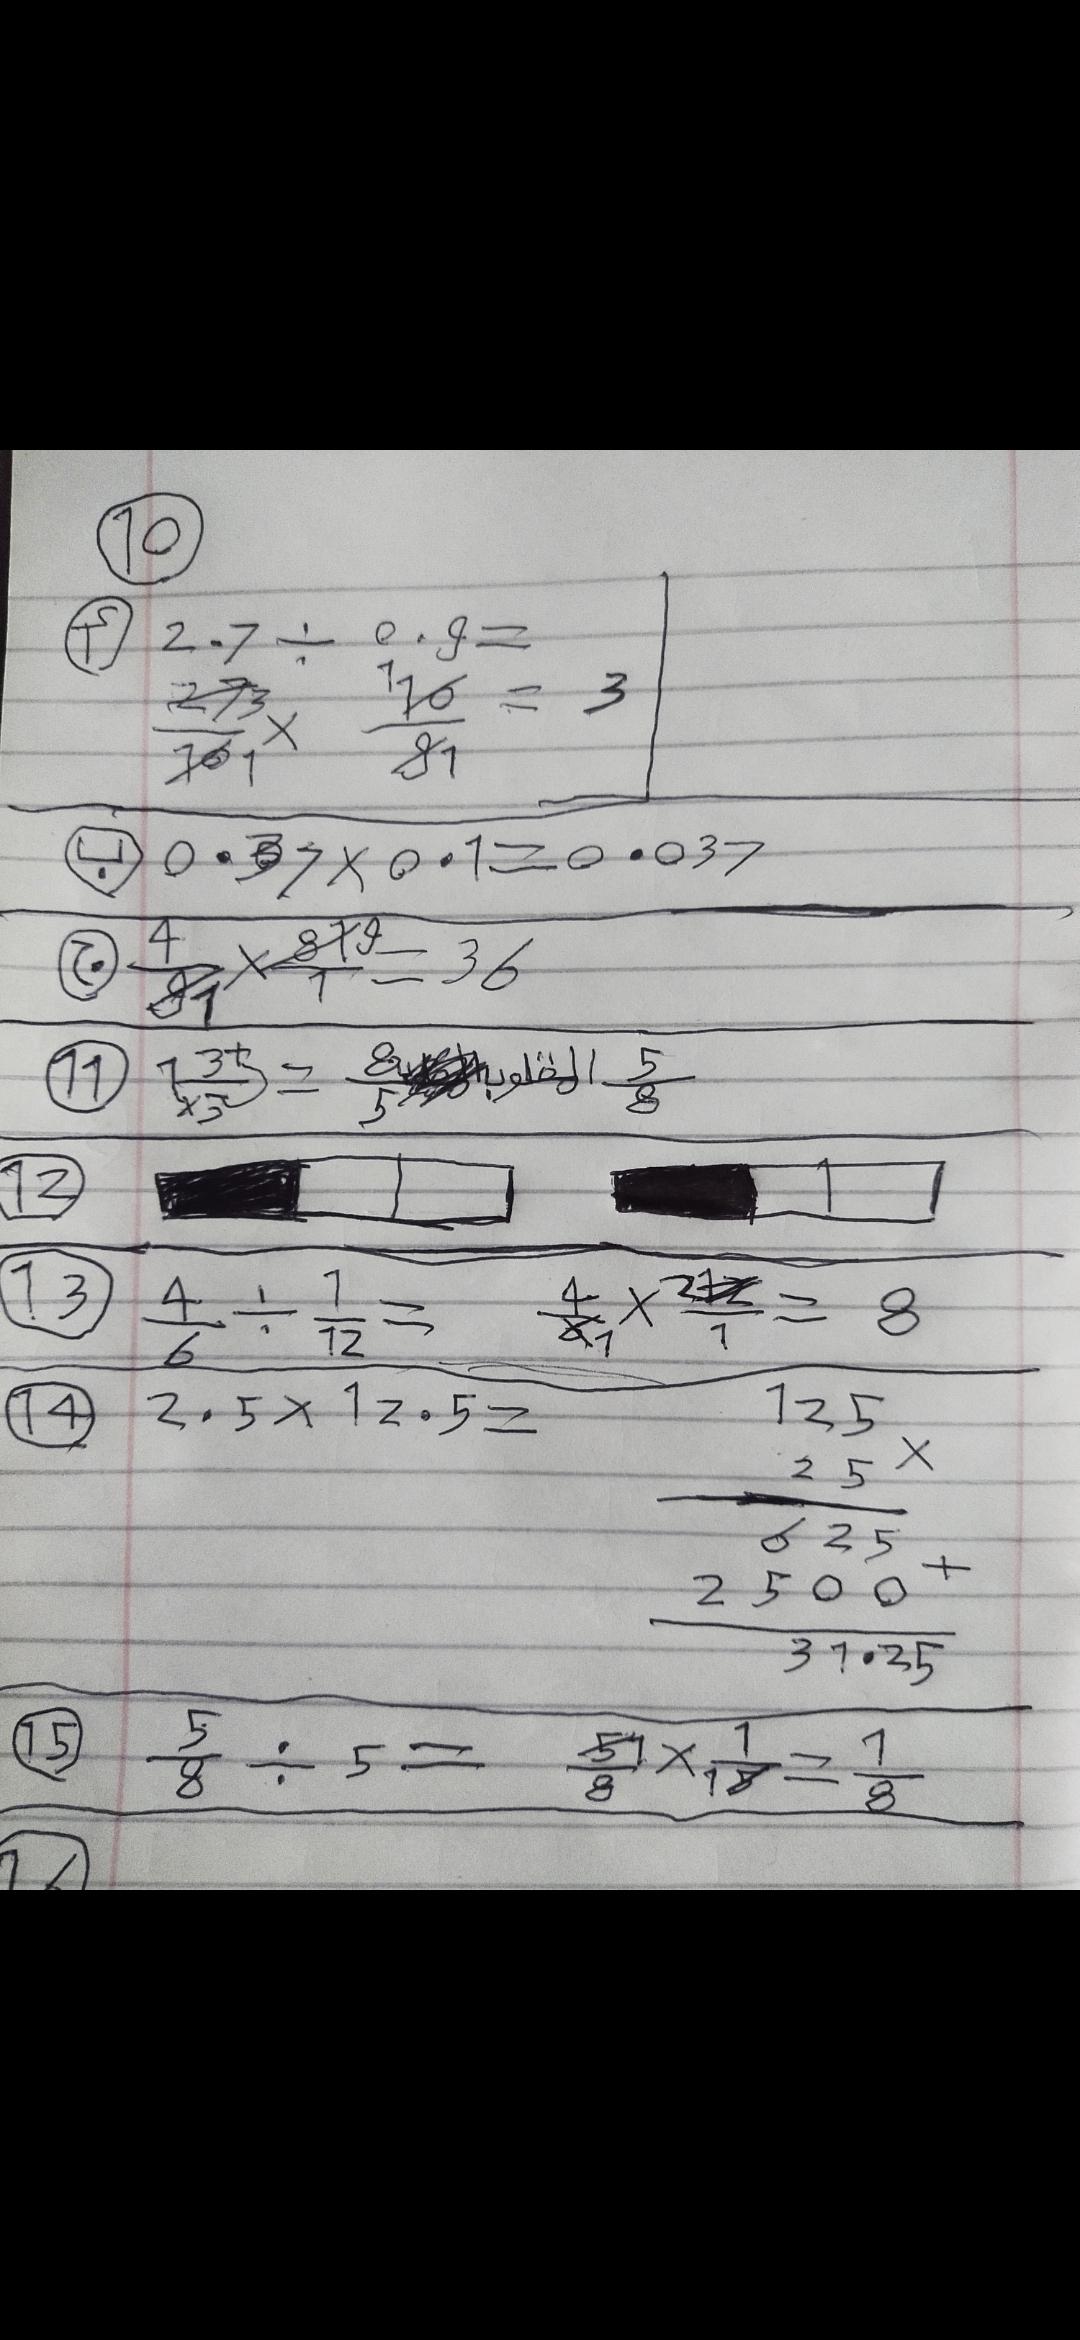 10
أ 2.7 ÷ 0.9 =
27 3/10 1 × 1 10/9 1 = 3
ب 0.37 × 0.1 = 0.037
ج 4/9 1 × 81 9/1 = 36
11 1 3+/×5 = 8/5 المقلوب 5/8
12
13 4/6 ÷ 1/12 = 4/6 1 × 2 12/1 = 8
14 2.5 × 12.5 = 125
25 ×
625
2500 +
31.25
15 5/8 ÷ 5 = 5 1/8 × 1/1 5 = 1/8